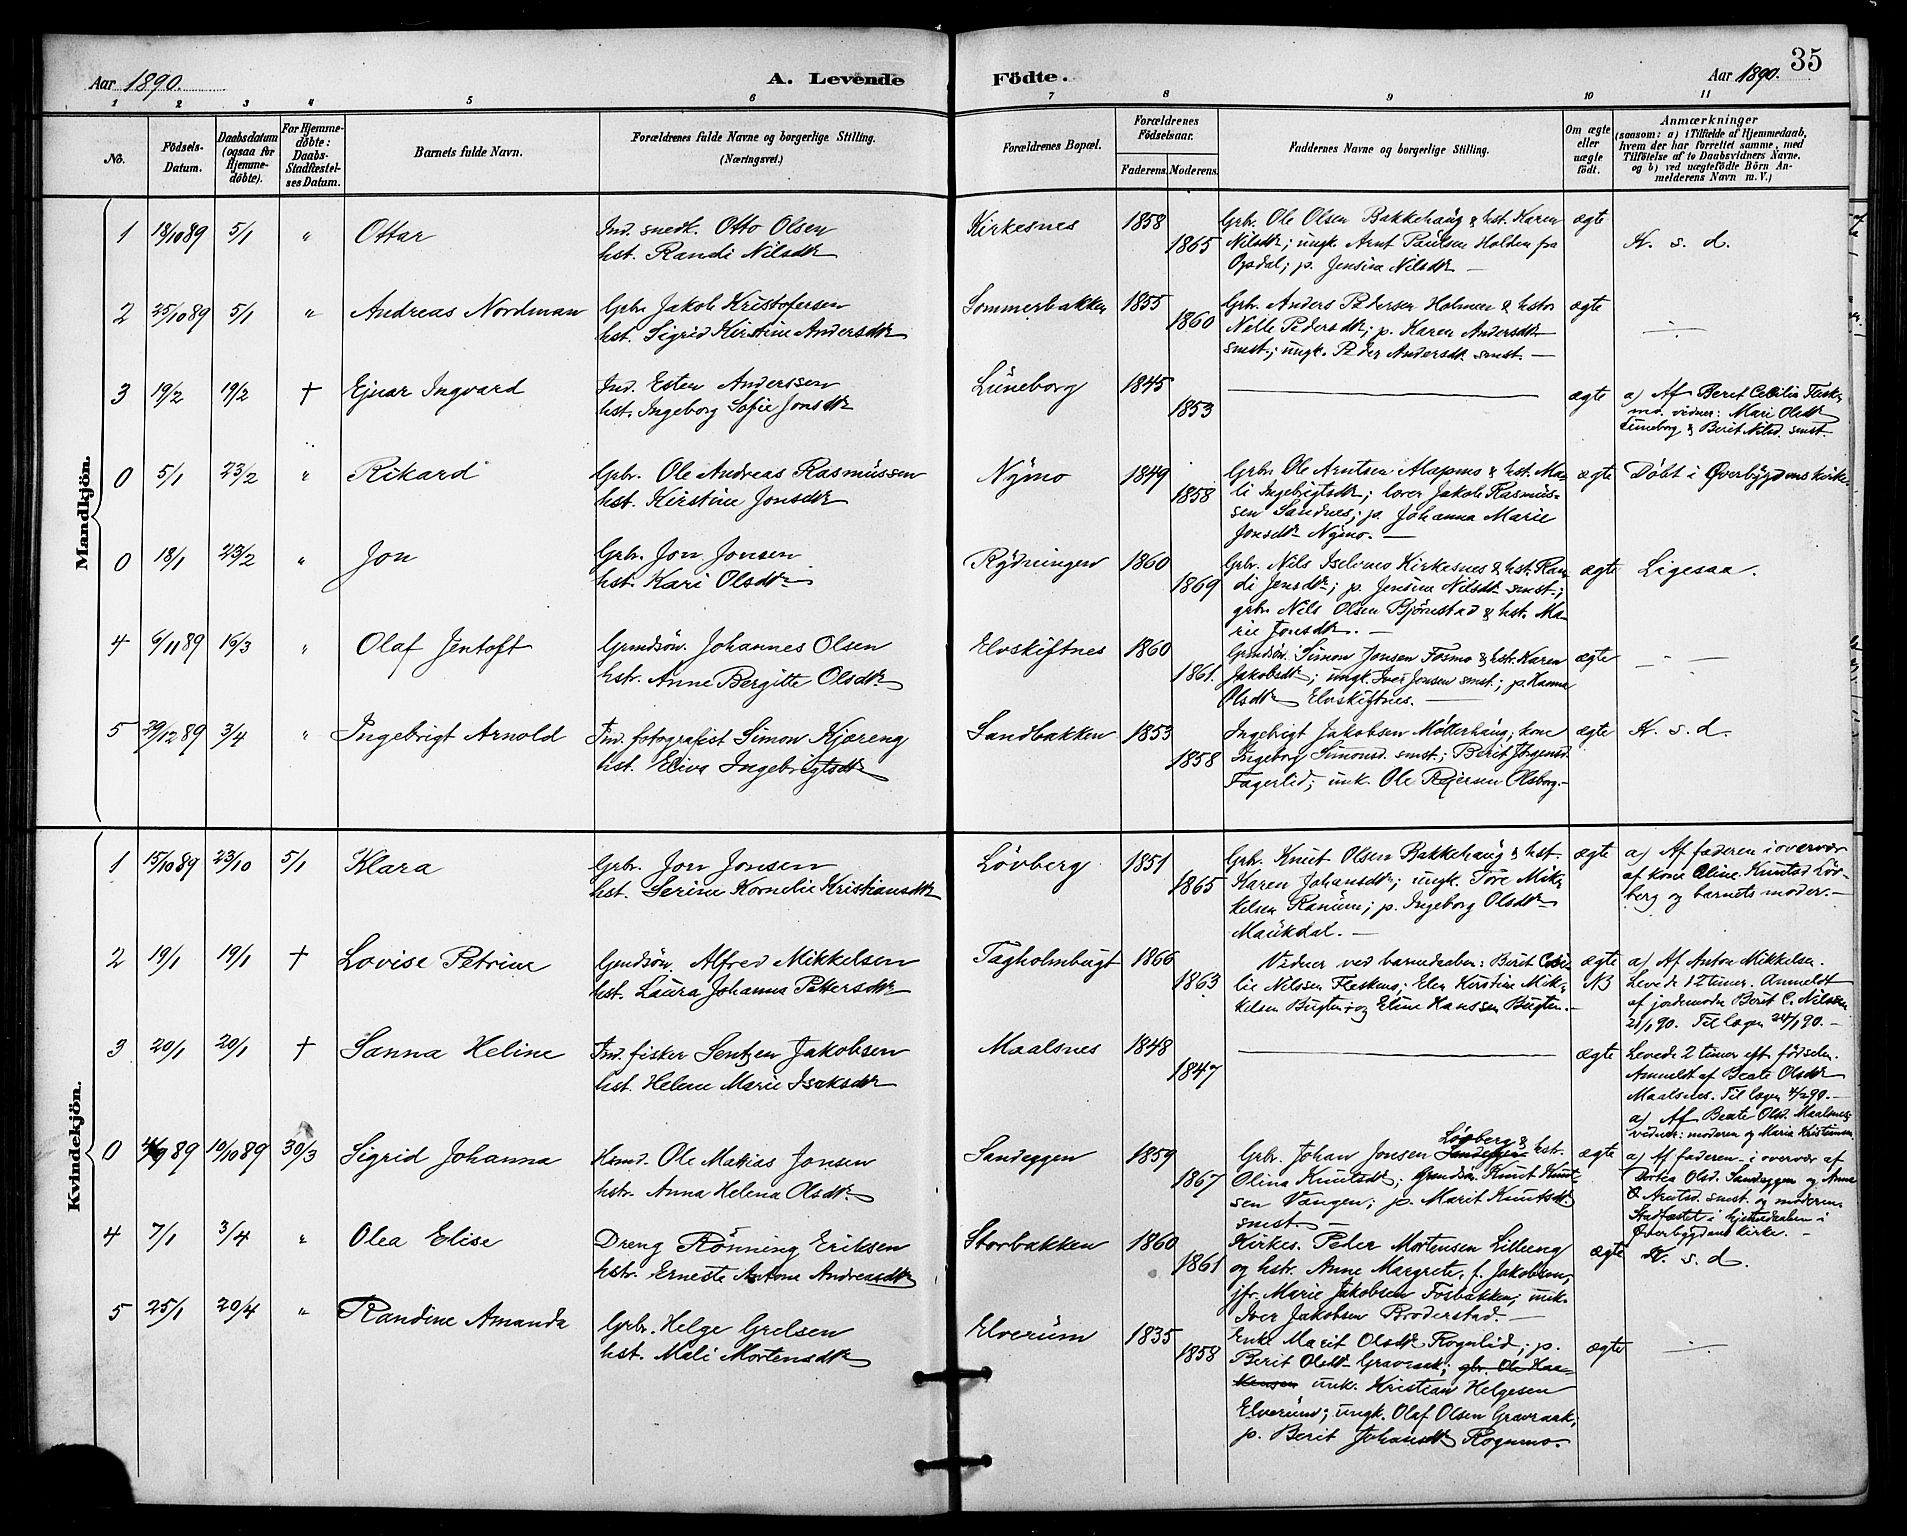 Aar 1890.
A. Levende Födte.
Aar 1890.
35
1 2 3 4 5 6 7 8 9 10 11
No.
Födsels-Datum.
Daabsdatum (ogsaa for Hjemme-döbte).
For Hjemme-döbte: Daabs-Stadfæstel-ses Datum.
Barnets fulde Navn.
Forældrenes fulde Navne og borgerlige Stilling. (Næringsvei.)
Forældrenes Bopæl.
Forældrenes Födselsaar.
Faderens. Moderens.
Faddernes Navne og borgerlige Stilling.
Om ægte eller uægte födt.
Anmærkninger
(saasom: a) i Tilfælde af Hjemmedaab, hvem der har forrettet samme, med Tilföielse af to Daabsvidners Navne, og b) ved uægtefödte Börn An-melderens Navn m. V.)
Mandkjön.
1 18/10 89 5/1 " Ottar
Ind. snedk. Otto Olsen
hst. Randi Nilsdtr
Kirkesnes 1858 1865
Grbr. Ole Olsen Bakkehaug & hst. Karen
Nilsdtr; ungk. Arnt Paulsen Holden fra
Opdal; p. Jensina Nilsdtr —
ægte
K. s. d.
2 25/10 89 5/1 " Andreas Nordman
Grbr. Jakob Kristofersen
hst. Sigrid Kirstine Andersdtr
Sommerbakken 1855 1860
Grbr. Anders Pedersen Holmen & hstr.
Nelle Pedersdtr; p. Karen Andersdtr
smst.; ungk. Peder Andersdtr. smst. —
ægte
—"—
3 19/2 19/2 † Ejnar Ingvard
Ind. Esten Anderssen
hst. Ingeborg Sofie Jonsdtr
Lüneborg 1845 1853
ægte
a) Af Berit Cecilia Flesk-
mo. vidner: Mari Olsdtr
Lüneborg & Berit Nilsd. smst.
0 5/1 23/2 " Rikard
Grbr. Ole Andreas Rasmussen
hst. Kirstine Jonsdtr
Nymo 1849 1858
Grbr. Ole Arntsen Alapmo & hst. Ma-
li Ingebrigtsdtr; lærer Jakob Rasmus-
sen Sandnes; p. Johanna Marie
Jonsdtr Nymo. —
ægte
Døbt i Øverbygdens kirke.
0 18/1 23/2 " Jon
Grbr. Jon Jonsen
hst. Kari Olsdtr
Rydningen 1860 1869
Grbr. Nils Iselvmo Kirkesnes & hst. Ran-
di Jensdtr; p. Jensina Nilsdtr smst;
grbr. Nils Olsen Bjørnestad & hst. Ma-
rie Jonsdtr. —
ægte
Ligesaa.
4 6/11 89 16/3 " Olaf Jentoft
Grndsøn. Johannes Olsen
hstr. Anne Bergitte Olsdtr
Elvskiftnes 1860 1861.
Grndsøn. Simon Jonsen Fosmo & hst. Karen
Jakobsdtr; ungk. Iver Jensen smst.; p. Hanna
Olsdtr Elvskiftnes. —
ægte
—"—
5 29/12 89 3/4 " Ingebrigt Arnold
Ind. fotografist Simon Kjæreng
hst. Eliva Ingebrigtsdtr
Sandbakken 1853 1858
Ingebrigt Jakobsen Møllerhaug; kone
Ingeborg Simonsd. smst.; Berit Jørgensd.
Fagerlid; unk. Ole Reiersen Olsborg. —
ægte
K. s. d.
Kvindekjön.
1 15/10 89 23/10 5/1 Klara
Grbr. Jon Jonsen
hst. Serine Kornelie Kristiansdtr
Løvberg 1851 1865
Grb. Knut Olsen Bakkehaug & hst.
Karen Johansdtr; ungk. Tore Mik-
kelsen Ranum; p. Ingeborg Olsdtr
Maukdal. —
ægte
a) Af faderen i overvær
af kone Oline Knutsd Løv-
berg og barnets moder. —
2 19/1 19/1 † Lovise Petrine
Grndsøn. Alfred Mikkelsen
hst. Laura Johanna Pettersdtr
Tagholmbugt 1866 1863
Vidner ved barnedaaben: Berit Ceci-
lie Nilssen Fleskmo; Elen Kirstine Mik-
kelsen Bugten og Eline Hanssen Bugten. —
ægte NB
a) Af Anton Mikkelsen.
Levede 12 timer. Anmeldt
af jordemoder Berit C. Nilssen
21/1 90. Til lægen 24/1 90. —
3 20/1 20/1 † Sanna Heline
Ind. fisker Sentzen Jakobsen
hst Helene Marie Isaksdtr
Maalsnes 1848 1847
ægte
Levede 2 timer eft. fødselen.
Anmeldt af Beate Olsdtr
Maalsnes. Til lægen 4/2 90. —
a) Af Beate Olsd. Maalsnes
vidner: moderen og Maria Kristiansen
0 4/9 89 10/10 89 30/3 Sigrid Johanna
Husmd. Ole Matias Jonsen
hstr. Anna Helena Olsdtr.
Sandeggen 1859 1867
Løvberg &
Grbr. Johan Jonsen Sandeggen hstr.
Olina Knutsdtr; Grndsøn Knut Knut-
sen Vangen; p. Marit Knutsdtr
smst. —
ægte
a) Af faderen i overvær af
Dortea Olsd. Sandeggen og Anna
O Arntsd. smst. og moderen.
Stadfæstet i hjemdaaben i
Øverbygdens kirke. —
4 7/1 3/4 " Olea Elise
Dreng Rönning Eriksen
hstr. Erneste Antone Andreasdtr
Storbakken 1860 1861
Kirkes. Peder Mortensen Lilleeng
og hstr. Anne Margrete, f. Jakobsen;
jfr. Marie Jakobsen Fosbakken; unk.
Iver Jakobsen Broderstad. —
ægte
K. s. d.
5 25/1 20/4 " Randine Amanda
Grbr. Helge Grelsen
hst. Mali Mortensdtr
Elverum 1835 1858
Enke Marit Olsdtr Rognlid; p.
Berit Olsdtr Gravraak; gbr. Ole Haa-
kensen unk. Kristian Helgesen
Elverum; ungk. Olaf Olsen Gravraak;
p. Berit Johansdtr Rognmo.
ægte
—"—